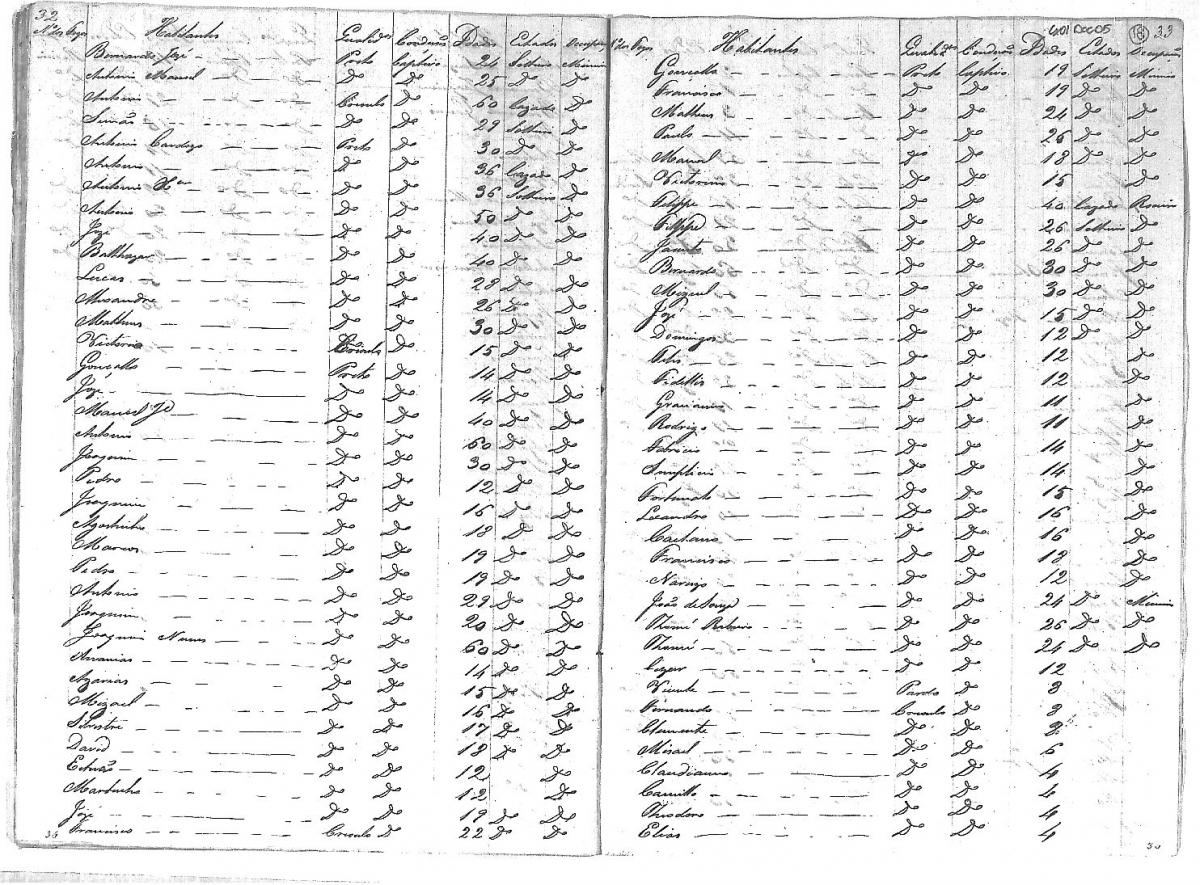 32
Nos dos Fogos Habitantes Qualides Condição Idades Estados Occupção
Bernardo José Preto Captivo 24 Solteiro Mineiro
Antonio Manoel Do Do 25 Do Do
Antonio Crioulo Do 60 Cazado Do
Simão Do Do 29 Solteiro Do
Antonio Cardozo Preto Do 30 Do Do
Antonio Do Do 36 Cazado Do
Antonio Do Do 36 Solteiro Do
Antonio Do Do 50 Do Do
Jozé Do Do 40 Do Do
Balthazar Do Do 40 Do Do
Lucas Do Do 28 Do Do
Do Do 26 Do Do
Matheus Do Do 30 Do Do
Victorio Crioulo Do 15 Do Do
Goncallo Preto Do 14 Do Do
Jozé Do Do 14 Do Do
Manoel Je Do Do 40 Do Do
Antonio Do Do 60 Do Do
Joaquim Do Do 30 Do Do
Pedro Do Do 12 Do Do
Joaquim Do Do 16 Do Do
Agostinho Do Do 18 Do Do
Marcos Do Do 19 Do Do
Pedro Do Do 19 Do Do
Antonio Do Do 29 Do Do
Joaquim Do Do 20 Do Do
Joaquim Nunes Do Do 60 Do Do
Ananias Do Do 14 Do Do
Azarias Do Do 15 Do Do
Mizael Do Do 16 Do Do
Silvestre Do Do 17 Do Do
David Do Do 18 Do Do
Estevão Do Do 12 Do
Martinho Do Do 12 Do
Jozé Do Do 19 Do Do
Francisco Crioulo Do 22 Do Do
36
401 DOC05 18 33
Nos dos Fogos Habitantes Qualides Condição Idades Estados Occupção
Goncallo Preto Captivo 19 Solteiro Mineiro
Francisco Do Do 19 Do Do
Matheus Do Do 24 Do Do
Paulo Do Do 26 Do Do
Manoel Do Do 18 Do Do
Victorino Do Do 15 Do
Felippe Do Do 40 Cazado Roceiro
Felippe Do Do 26 Solteiro Do
Do Do 26 Do Do
Bernardo Do Do 30 Do Do
Miguel Do Do 30 Do Do
José Do Do 15 Do Do
Domingos Do Do 12 Do Do
Felis Do Do 12 Do
Fidellis Do Do 12 Do
Do Do 11 Do
Rodrigo Do Do 11 Do
Fabricio Do Do 14 Do
Simplicio Do Do 14 Do
Fortunato Do Do 15 Do
Leandro Do Do 16 Do
Caetano Do Do 16 Do
Francisco Do Do 18 Do
Do Do 12 Do
João de Souza Do Do 24 Do Mineiro
Thomé Ribeiro Do Do 26 Do Do
Thomé Do Do 24 Do Do
Cezar Do Do 12
Vicente Pardo Do 8
Fernando Crioulo Do 8
Clemente Do Do 8
Misael Do Do 6
Claudianno Do Do 4
Camillo Do Do 6
Theodoro Do Do 4
Elias Do Do 4